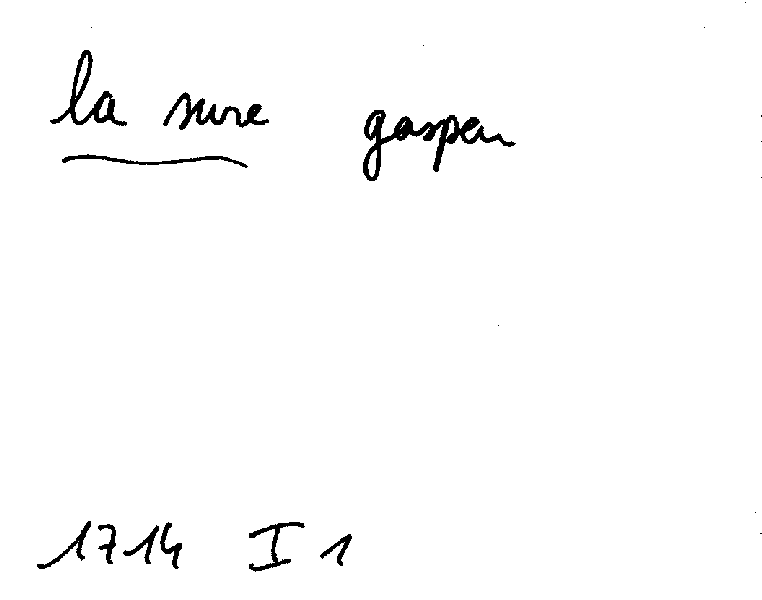 la sure gaspeu
1714 I 1